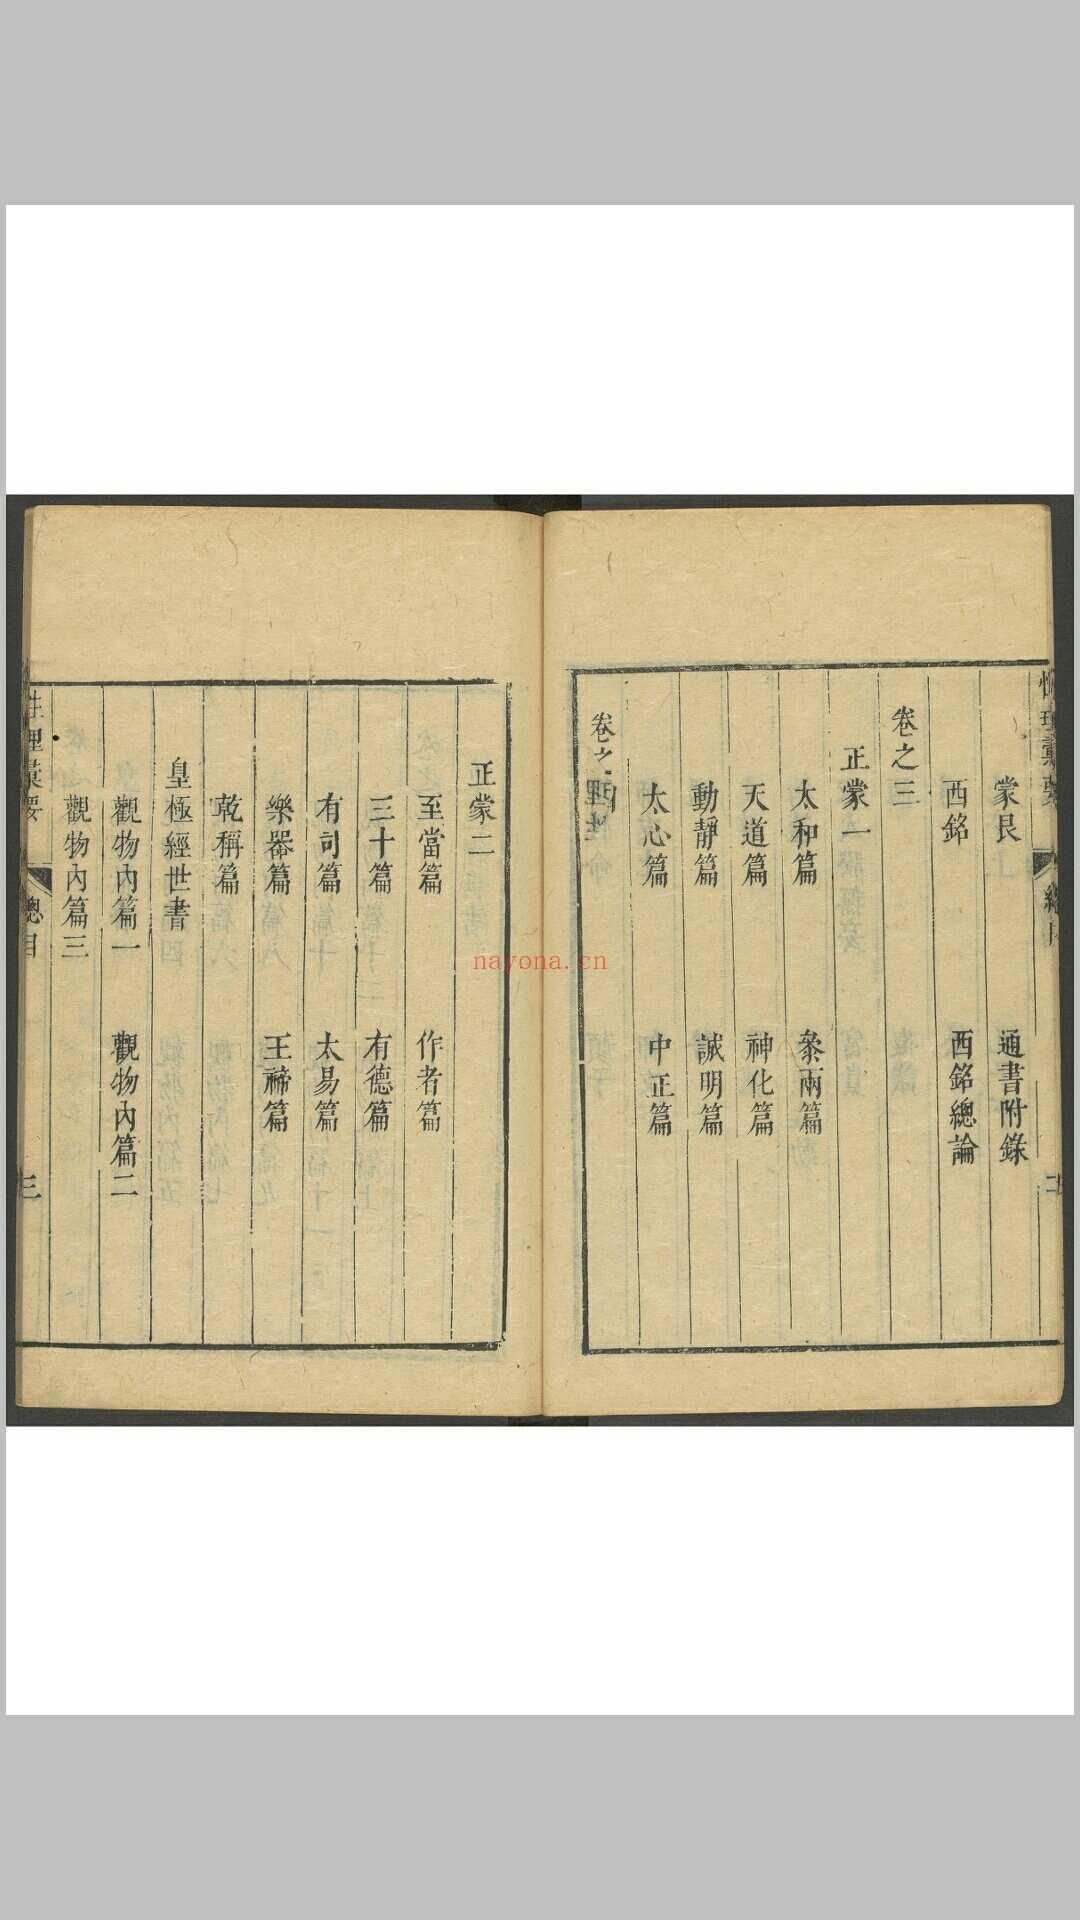 蒙艮　通書附錄
西銘　西銘總論
卷之三
正蒙一
太和篇　叅兩篇
天道篇　神化篇
動靜篇　誠明篇
太心篇　中正篇
卷之
正蒙二
至當篇　作者篇
三十篇　有德篇
有司篇　太易篇
樂器篇　王禘篇
乾稱篇
皇極經世書
觀物內篇一　觀物內篇二
觀物內篇三
性理彙要　總目　三
nayona.cn